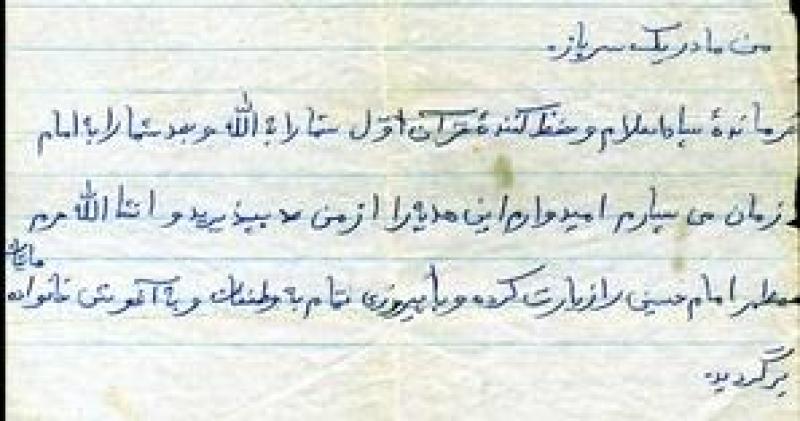 من مادر یک سرباز.
فرماندهٔ سپاه اسلام و حفظ کنندهٔ قرآن اول شما را به الله و بعد شما را به امام
زمان می سپارم امیدوارم این هدیه را از من بپذیرید و انشا الله حرم
مطهر امام حسینی را زیارت کرده و با پیروزی تمام به وطنتان و به آغوش خانواده
برگردید.